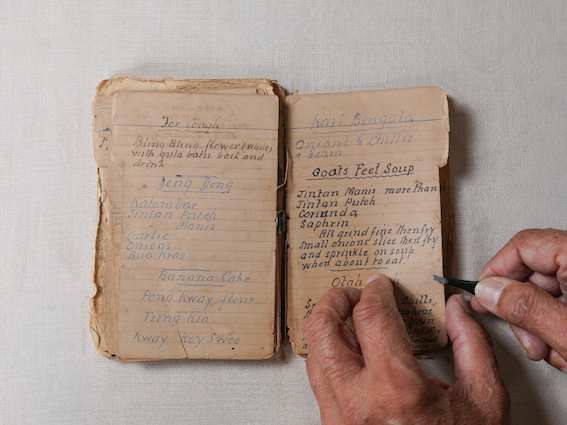 For Cough
Bling Bling flower (whole)
with gula batu boil and
drink
Deng Deng
Kalombar
Jintan Puteh
Manis
Garlic
Onions
Asa kras
Banana Cake
Pong Kway flour.
Tung Kia
Kway Koy Swee
Kari Bengala
Onions & Chillies
Goats Feet Soup
Jintan Manis more than
Jintan Puteh
Corianda
Saphrin
All grind fine then fry
small onions slice then fry
and sprinkle on soup
when about to eat.
Otah
Chilli,